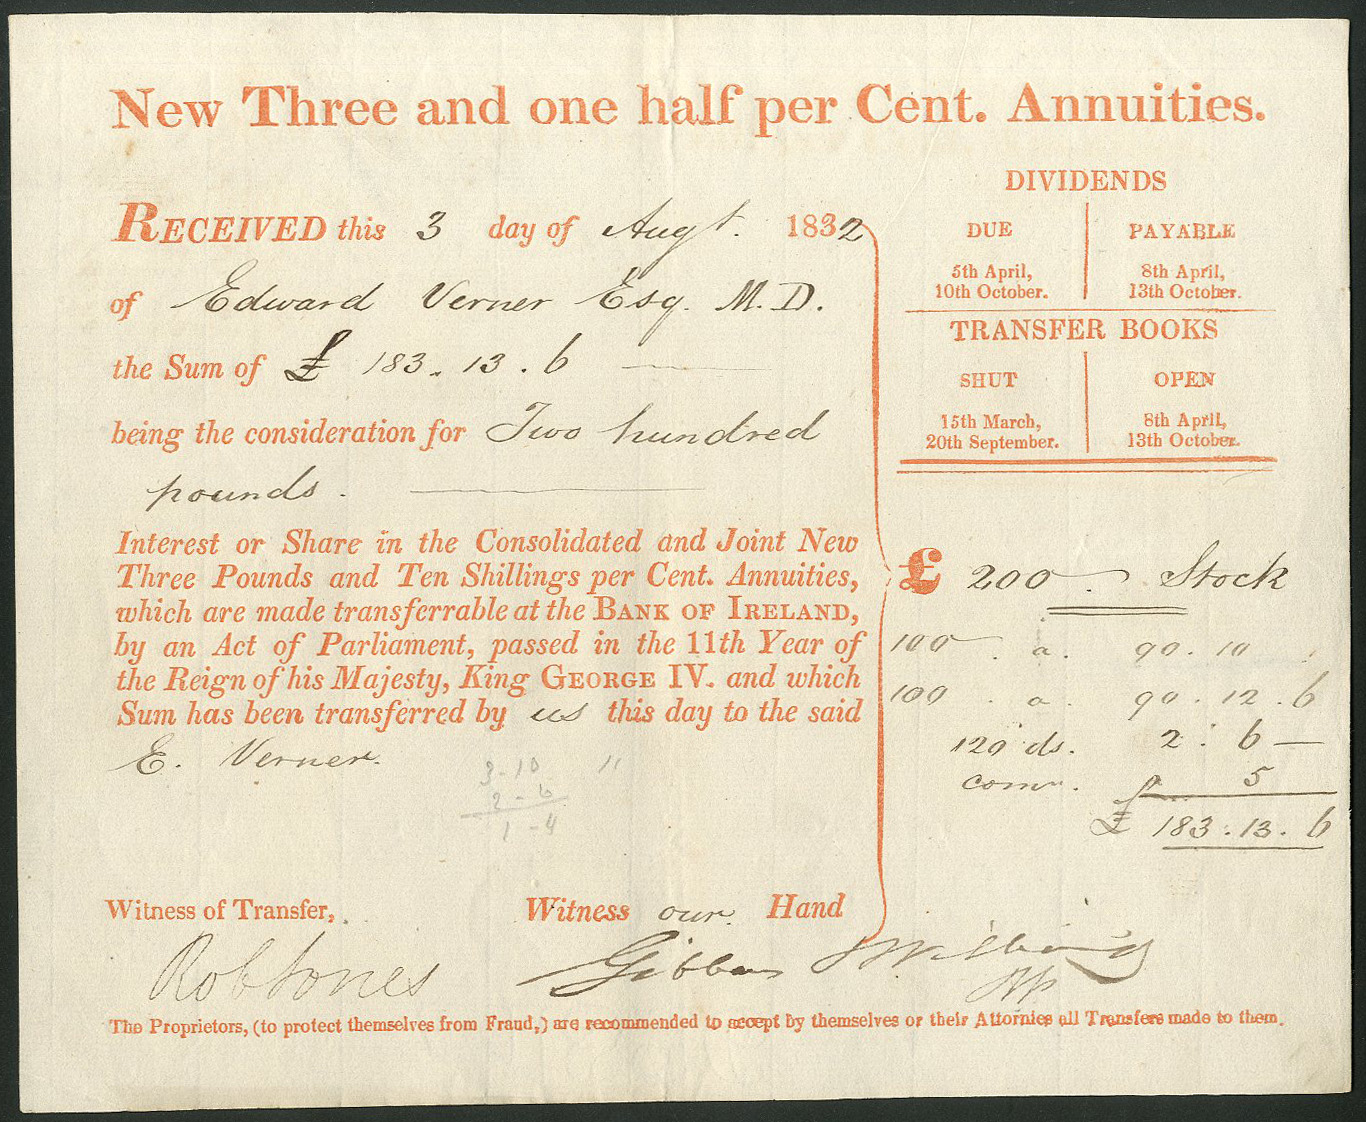 New Three and one half per Cent. Annuities.
RECEIVED this 3 day of Augt. 1832
of Edward Verner Esq. M.D.
the Sum of £ 183. 13. 6
being the consideration for Two hundred
pounds.
Interest or Share in the Consolidated and Joint New
Three Pounds and Ten Shillings per Cent. Annuities,
which are made transferrable at the BANK OF IRELAND,
by an Act of Parliament, passed in the 11th Year of
the Reign of his Majesty, King GEORGE IV. and which
Sum has been transferred by us this day to the said
E. Verner.
3-10 "
2-6
1-4
Witness of Transfer,
Witness our Hand
Rob Jones
Gibbons
DIVIDENDS
DUE PAYABLE
5th April, 8th April,
10th October. 13th October.
TRANSFER BOOKS
SHUT OPEN
15th March, 8th April,
20th September. 13th October.
£ 200 Stock
100 . a. 90. 10
100 . a. 90. 12. 6
120 ds. 2: 6
5
£ 183. 13. 6
The Proprietors, (to protect themselves from Fraud,) are recommended to accept by themselves or their Attornies all Transfers made to them.